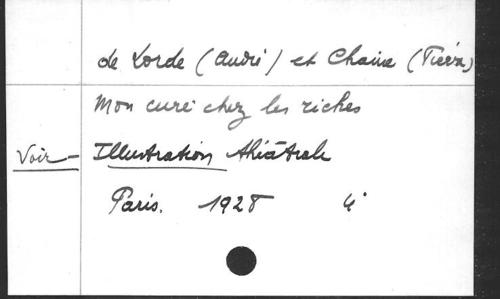 de Lorde (André) et Chaine (Pierre)
Mon curé chez les riches
Voir - Illustration théâtrale
Paris. 1928 4°